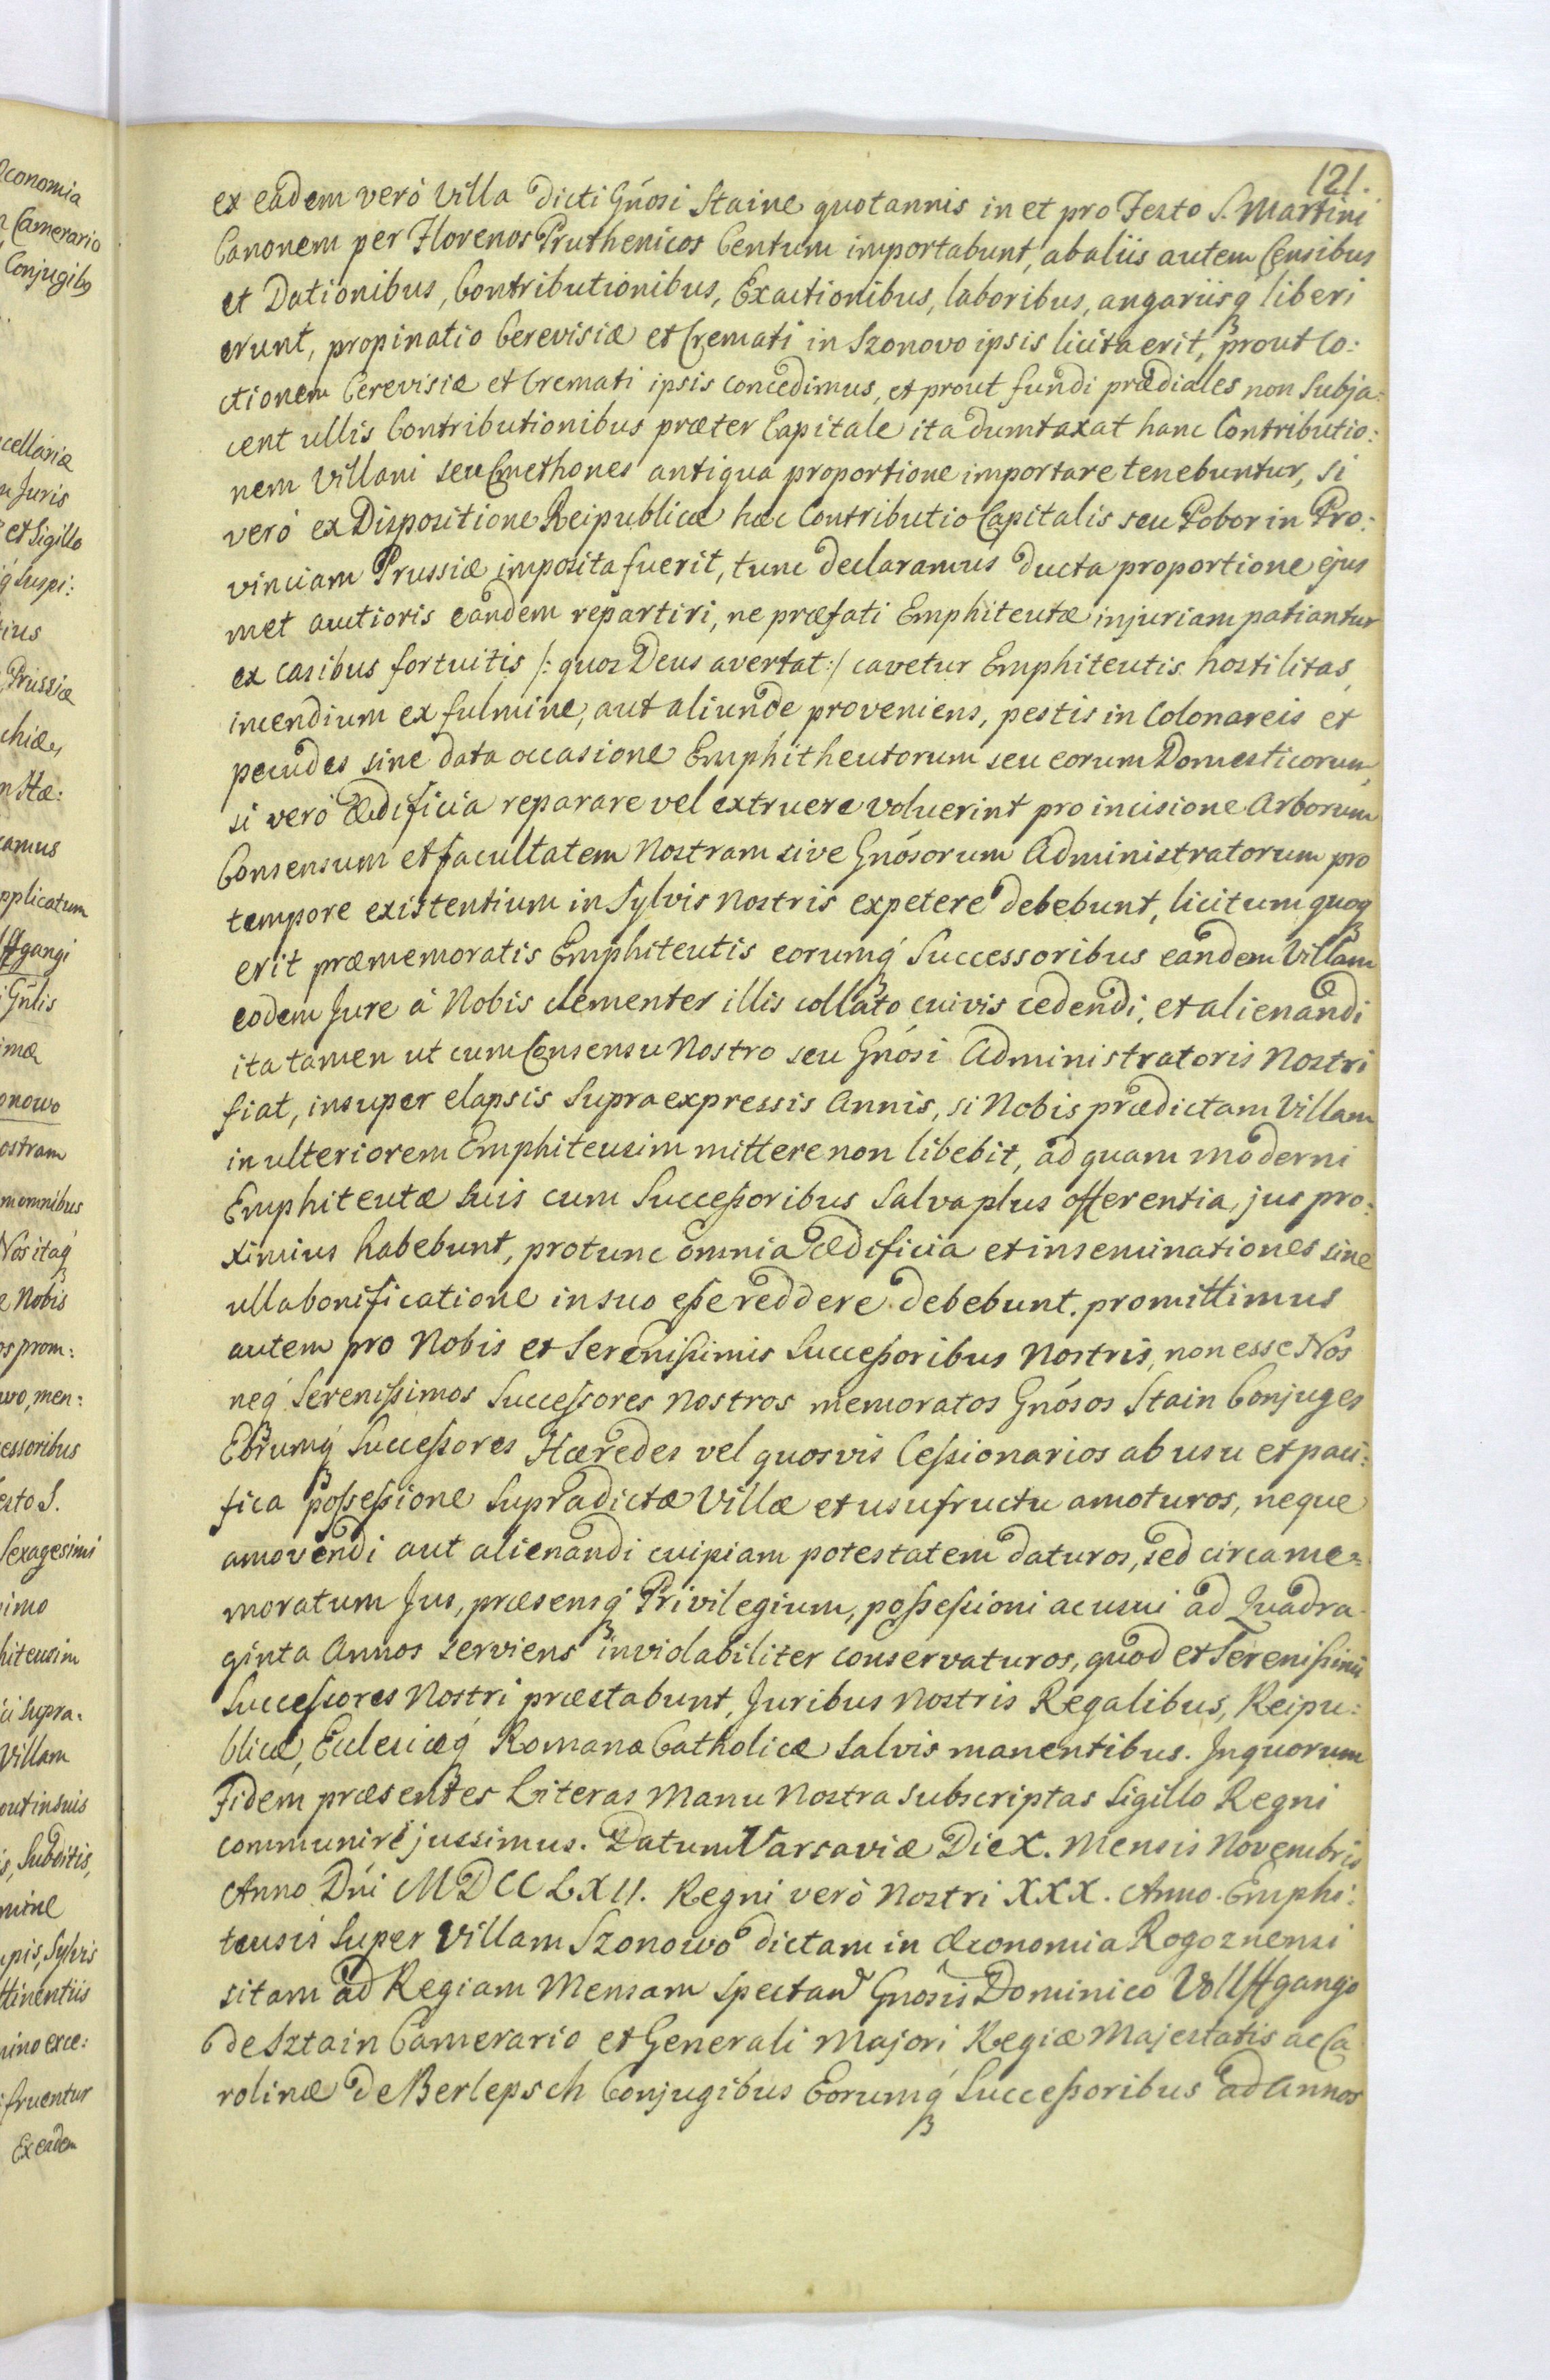 121.
ex eadem verò Villa dicti Gnósi Staine quotannis in et pro Festo S. Martini
Canonem per Florenos Pruthenicos Centum importabunt, ab aliis autem Censibus
et Dationibus, Contributionibus, Exactionibus, laboribus, angariisq́ liberi
erunt, propinatio Cerevisiæ et Cremati in Szonovo ipsis licita erit, prout Co:
ctionem Cerevisiæ et Cremati ipsis concedimus, et prout fundi prædiales non Subja:
cent ullis Contributionibus præter Capitale ita dumtaxat hanc Contributio:
nem Villani seu Cmethones antiqua proportione importare tenebuntur, si
verò ex Dispositione Reipublicæ hæc Contributio Capitalis seu Pobor in Pro:
vinciam Prussiæ imposita fuerit, tunc declaramus ducta proportione ejus
met auctioris eandem repartiri, ne præfati Emphiteutæ injuriam patiantur
ex casibus fortuitis /: quos Deus avertat :/ cavetur Emphiteutis hostilitas,
incendium ex fulmine, aut aliunde proveniens, pestis in Colonareis et
pecudes sine data occasione Emphitheutorum seu eorum Domesticorum,
si verò Ædificia reparare vel extruere voluerint pro incisione Arborum
Consensum et facultatem Nostram sive Gnósorum Administratorum pro
tempore existentium in Sylvis Nostris expetere debebunt, licitum quoq
erit præmemoratis Emphiteutis eorumq́ Successoribus eandem Villam
eodem Jure à Nobis clementer illis collato cuivis cedendi, et alienandi
ita tamen ut cum Consensu Nostro seu Gnósi Administratoris Nostri
fiat, insuper elapsis Supra expressis Annis, si Nobis prædictam Villam
in ulteriorem Emphiteusim mittere non libebit, ad quam moderni
Emphiteutæ suis cum Successoribus Salva plus offerentia, jus pro:
ximius habebunt, pro tunc omnia Ædificia et inseminationes sine
ulla bonificatione in suo esse reddere debebunt. promittimus
autem pro Nobis et Serenissimis Successoribus Nostris, non esse Nos
neq́ Serenissimos Successores Nostros memoratos Gnósos Stain Conjuges
Eorumq́ Successores Hæredes vel quosvis Cessionarios ab usu et paci:
fica possessione Supradictæ Villæ et usufructu amoturos, neque
amovendi aut alienandi cuipiam potestatem daturos, sed circa me=
moratum Jus, præsensq́ Privilegium, possessioni ac usui ad Quadra
ginta Annos serviens inviolabiliter conservaturos, quod et Serenissimi
Successores Nostri præstabunt, Juribus Nostris Regalibus, Reipu:
blicæ, Eclesiæq́ Romanæ Catholicæ Salvis manentibus. In quorum
Fidem præsentes Literas Manu Nostra subscriptas Sigillo Regni
communire jussimus. Datum Varsaviæ Die X. Mensis Novembris
Anno Dni MDCCLXII. Regni verò Nostri XXX. Anno. Emphi:
teusis Super Villam Szonowo dictam in Œconomia Rogoznensi
sitam ad Regiam Mensam Spectan Gnósis Dominico Wollffgango
de Sztain Camerario et Generali Majori Regiæ Majestatis ac Ca
rolinæ de Berlepsch Conjugibus Eorumq́ Successoribus ad Annos
Camerario
cellariæ
Juris
et Sigillo
Prussiæ
camus
applicatum
ffgangi
Gnlis
onowo
ostram
Nos itaq́
Nobis
prom:
wo, men:
essoribus
esto S.
Sexagesimi
hiteusim
Supra.
Villam
out in suis
Subditis,
Sylvis
ttinentiis
exce:
fruentur
Ex eadem